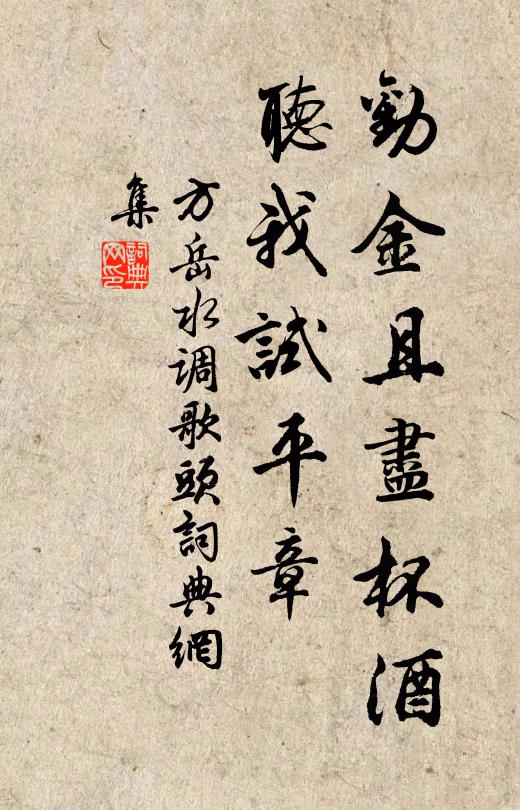 勸金且盡杯酒
聽我試平章
方岳水调歌頭詞典網
集
詞典
网印